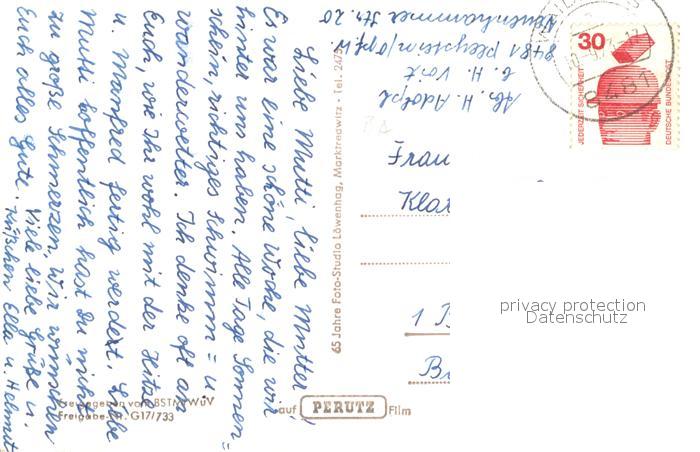 Liebe Mutti, liebe Mutter!
Es war eine schöne Woche, die wir
hinter uns haben. Alle Tage Sonnen=
schein, richtiges Schwimm= u.
Wanderwetter. Ich denke oft an
Euch, wie Ihr wohl mit der Hitze
u. Manfred fertig werdet. Liebe
Mutti hoffentlich hast Du nicht
zu große Schmerzen, wir wünschen
Euch alles Gute. Viele liebe Grüße u.
Küßchen Ella u. Helmut
65 Jahre Foto-Studio Löwenhag, Marktredwitz · Tel.
Abs. H. Adolph
b. H.
8481 Pleystein/Opf.
Str. 20
30
JEDERZEIT SICHERHEIT
DEUTSCHE BUNDESPOST
8481
Frau
1 B
privacy protection
Datenschutz
Freigegeben vom BSTMfWuV
Freigabe-Nr. G17/733
auf PERUTZ Film